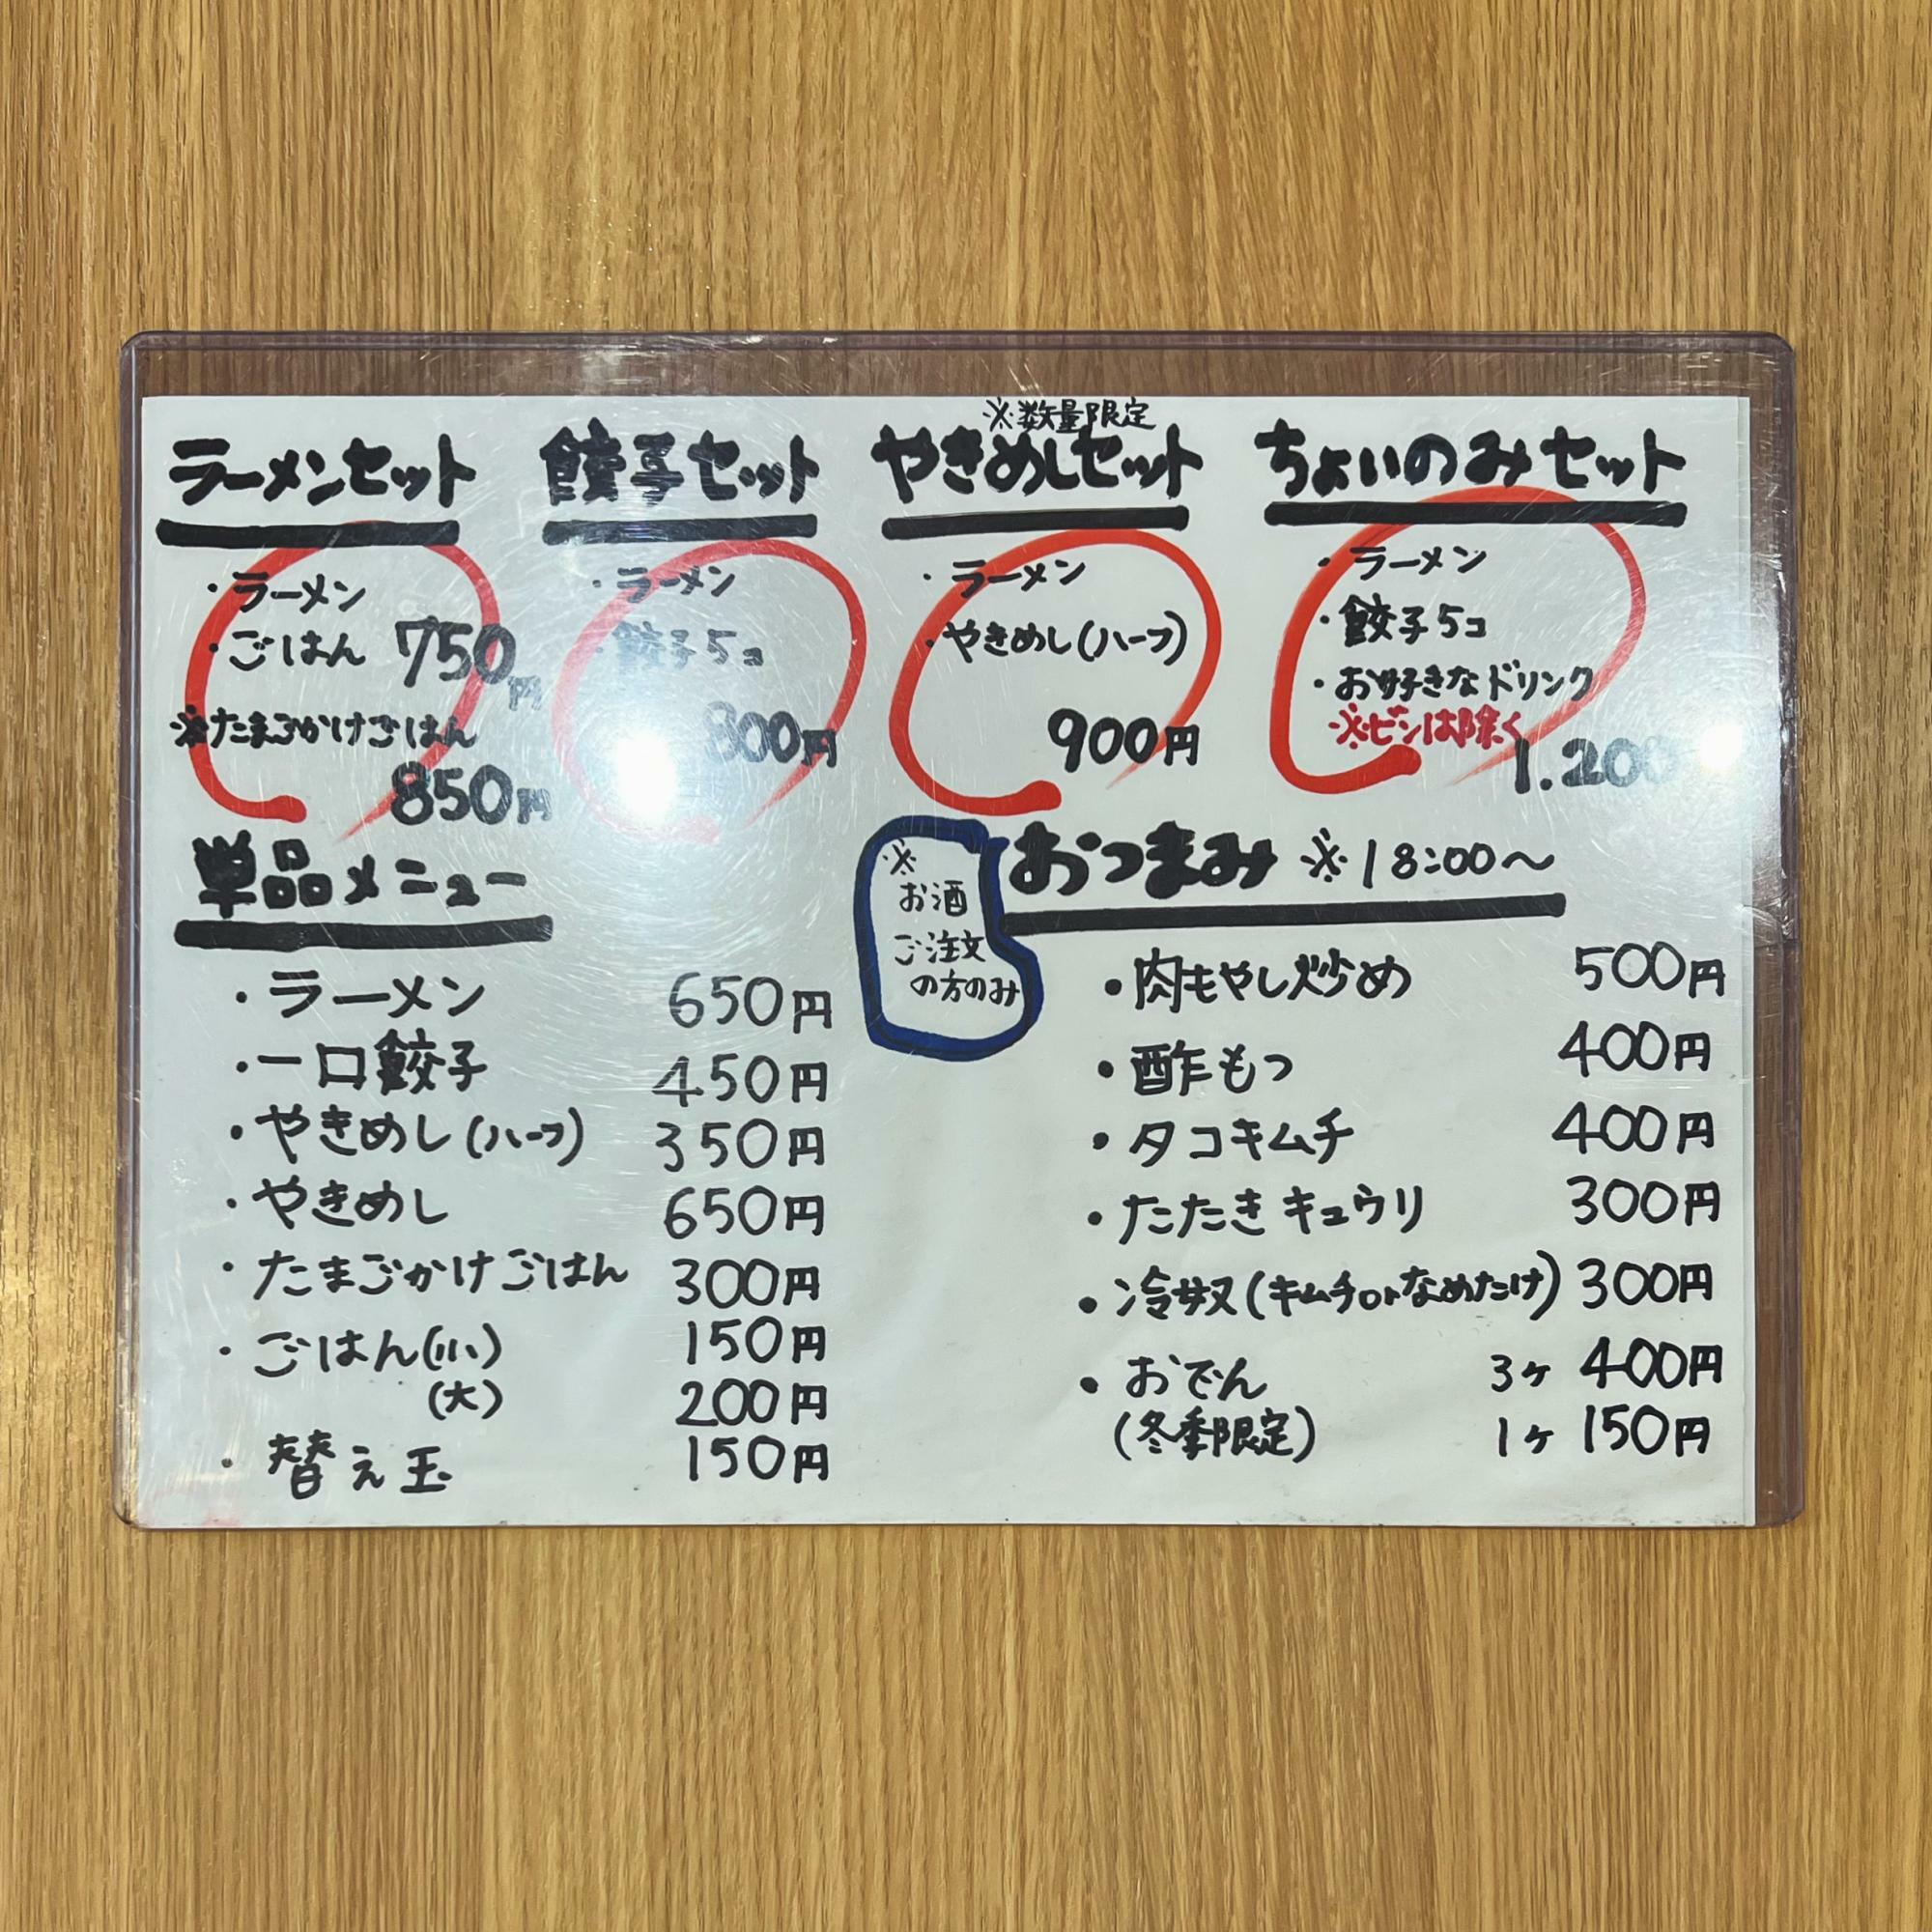 ラーメンセット
・ラーメン
・ごはん 750円
※たまごかけごはん
850円
餃子セット
・ラーメン
・餃子5コ
800円
※数量限定
やきめしセット
・ラーメン
・やきめし(ハーフ)
900円
ちょいのみセット
・ラーメン
・餃子5コ
・お好きなドリンク
※ビンは除く
1.200
単品メニュー
・ラーメン 650円
・一口餃子 450円
・やきめし(ハーフ) 350円
・やきめし 650円
・たまごかけごはん 300円
・ごはん(小) 150円
(大) 200円
・替え玉 150円
※
お酒
ご注文
の方のみ
おつまみ ※18:00～
・肉もやし炒め 500円
・酢もつ 400円
・タコキムチ 400円
・たたきキュウリ 300円
・冷奴(キムチorなめたけ) 300円
・おでん 3ヶ 400円
(冬季限定) 1ヶ 150円